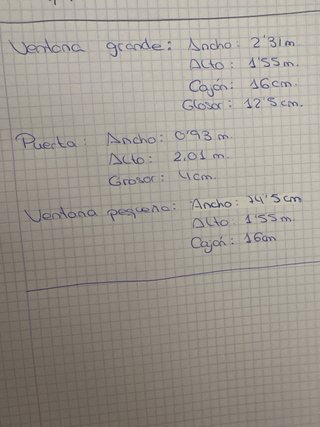 Ventana grande: Ancho: 2'31 m.
Alto: 1'55 m.
Cajón: 16cm.
Glosor: 12'5 cm.
Puerta: Ancho: 0'93 m.
Alto: 2,01 m.
Grosor: 4cm.
Ventana pequeña: Ancho: 74'5 cm
Alto: 1'55 m.
Cajón: 16cm